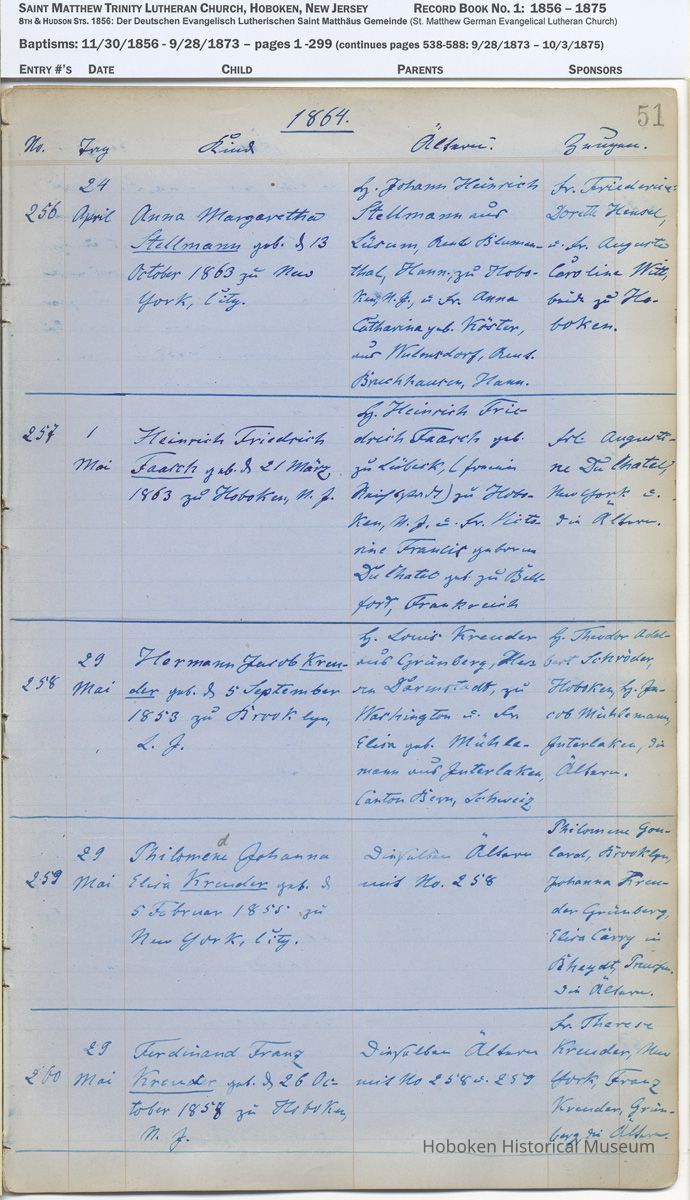 SAINT MATTHEW TRINITY LUTHERAN CHURCH, HOBOKEN, NEW JERSEY RECORD BOOK NO. 1: 1856 – 1875
8TH & HUDSON STS. 1856: Der Deutschen Evangelisch Lutherischen Saint Matthäus Gemeinde (St. Matthew German Evangelical Lutheran Church)
Baptisms: 11/30/1856 - 9/28/1873 – pages 1 -299 (continues pages 538-588: 9/28/1873 – 10/3/1875)
ENTRY #'S DATE CHILD PARENTS SPONSORS
1864. 51
No. Tag Kind Ältern. Zeugen.
256
24
April
Anna Margaretha
Stellmann geb. d 13
October 1863 zu New
York, City.
H. Johann Heinrich
Stellmann aus
Lüsum, Amt Blumen-
thal, Hann., zu Hobo-
ken, N. J., u. Fr. Anna
Catharina geb. Köster,
aus Wulmsdorf, Amt.
Bruchhausen, Hann.
Fr. Friederica
Doreth Hensel,
u. Fr. Auguste
Caroline Witt,
beide zu Ho-
boken.
257
1
Mai
Heinrich Friedrich
Faasch geb. d 21 März
1863 zu Hoboken, N. J.
H. Heinrich Frie-
drich Faasch geb.
zu Lübeck, (freien
Reichsstadt) zu Hobo-
ken, N. J. u. Fr.
Francis geboren
Du Chatel geb. zu Bel-
fort, Frankreich
Frl. Augusti-
ne Du Chatel,
New York u.
die Ältern.
258
29
Mai
Hermann Jacob Kreu-
der geb. d 5 September
1853 zu Brooklyn,
L. J.
H. Louis Kreuder
aus Grünberg, Hes-
sen Darmstadt, zu
Washington u. Fr
Elisa geb. Mühle-
mann aus Interlaken,
Canton Bern, Schweiz
H. Theodor Adel-
bert Schröder,
Hoboken, H. Ja-
cob Mühlemann,
Interlaken, die
Ältern.
259
29
Mai
Philomene Johanna
Elisa Kreuder geb. d
5 Februar 1855 zu
New York, City.
Dieselben Ältern
mit No. 258
Philomene Gou-
lard, Brooklyn,
Johanna Kreu-
der Grünberg,
Elisa Carry in
Rheydt, Preußen.
die Ältern.
260
29
Mai
Ferdinand Franz
Kreuder geb. d 26 Oc-
tober 1858 zu Hoboken,
N. J.
Dieselben Ältern
mit No 258 u. 259
Fr. Therese
Kreuder, New
York, Franz
Kreuder, Grün-
berg die Ältern.
Hoboken Historical Museum